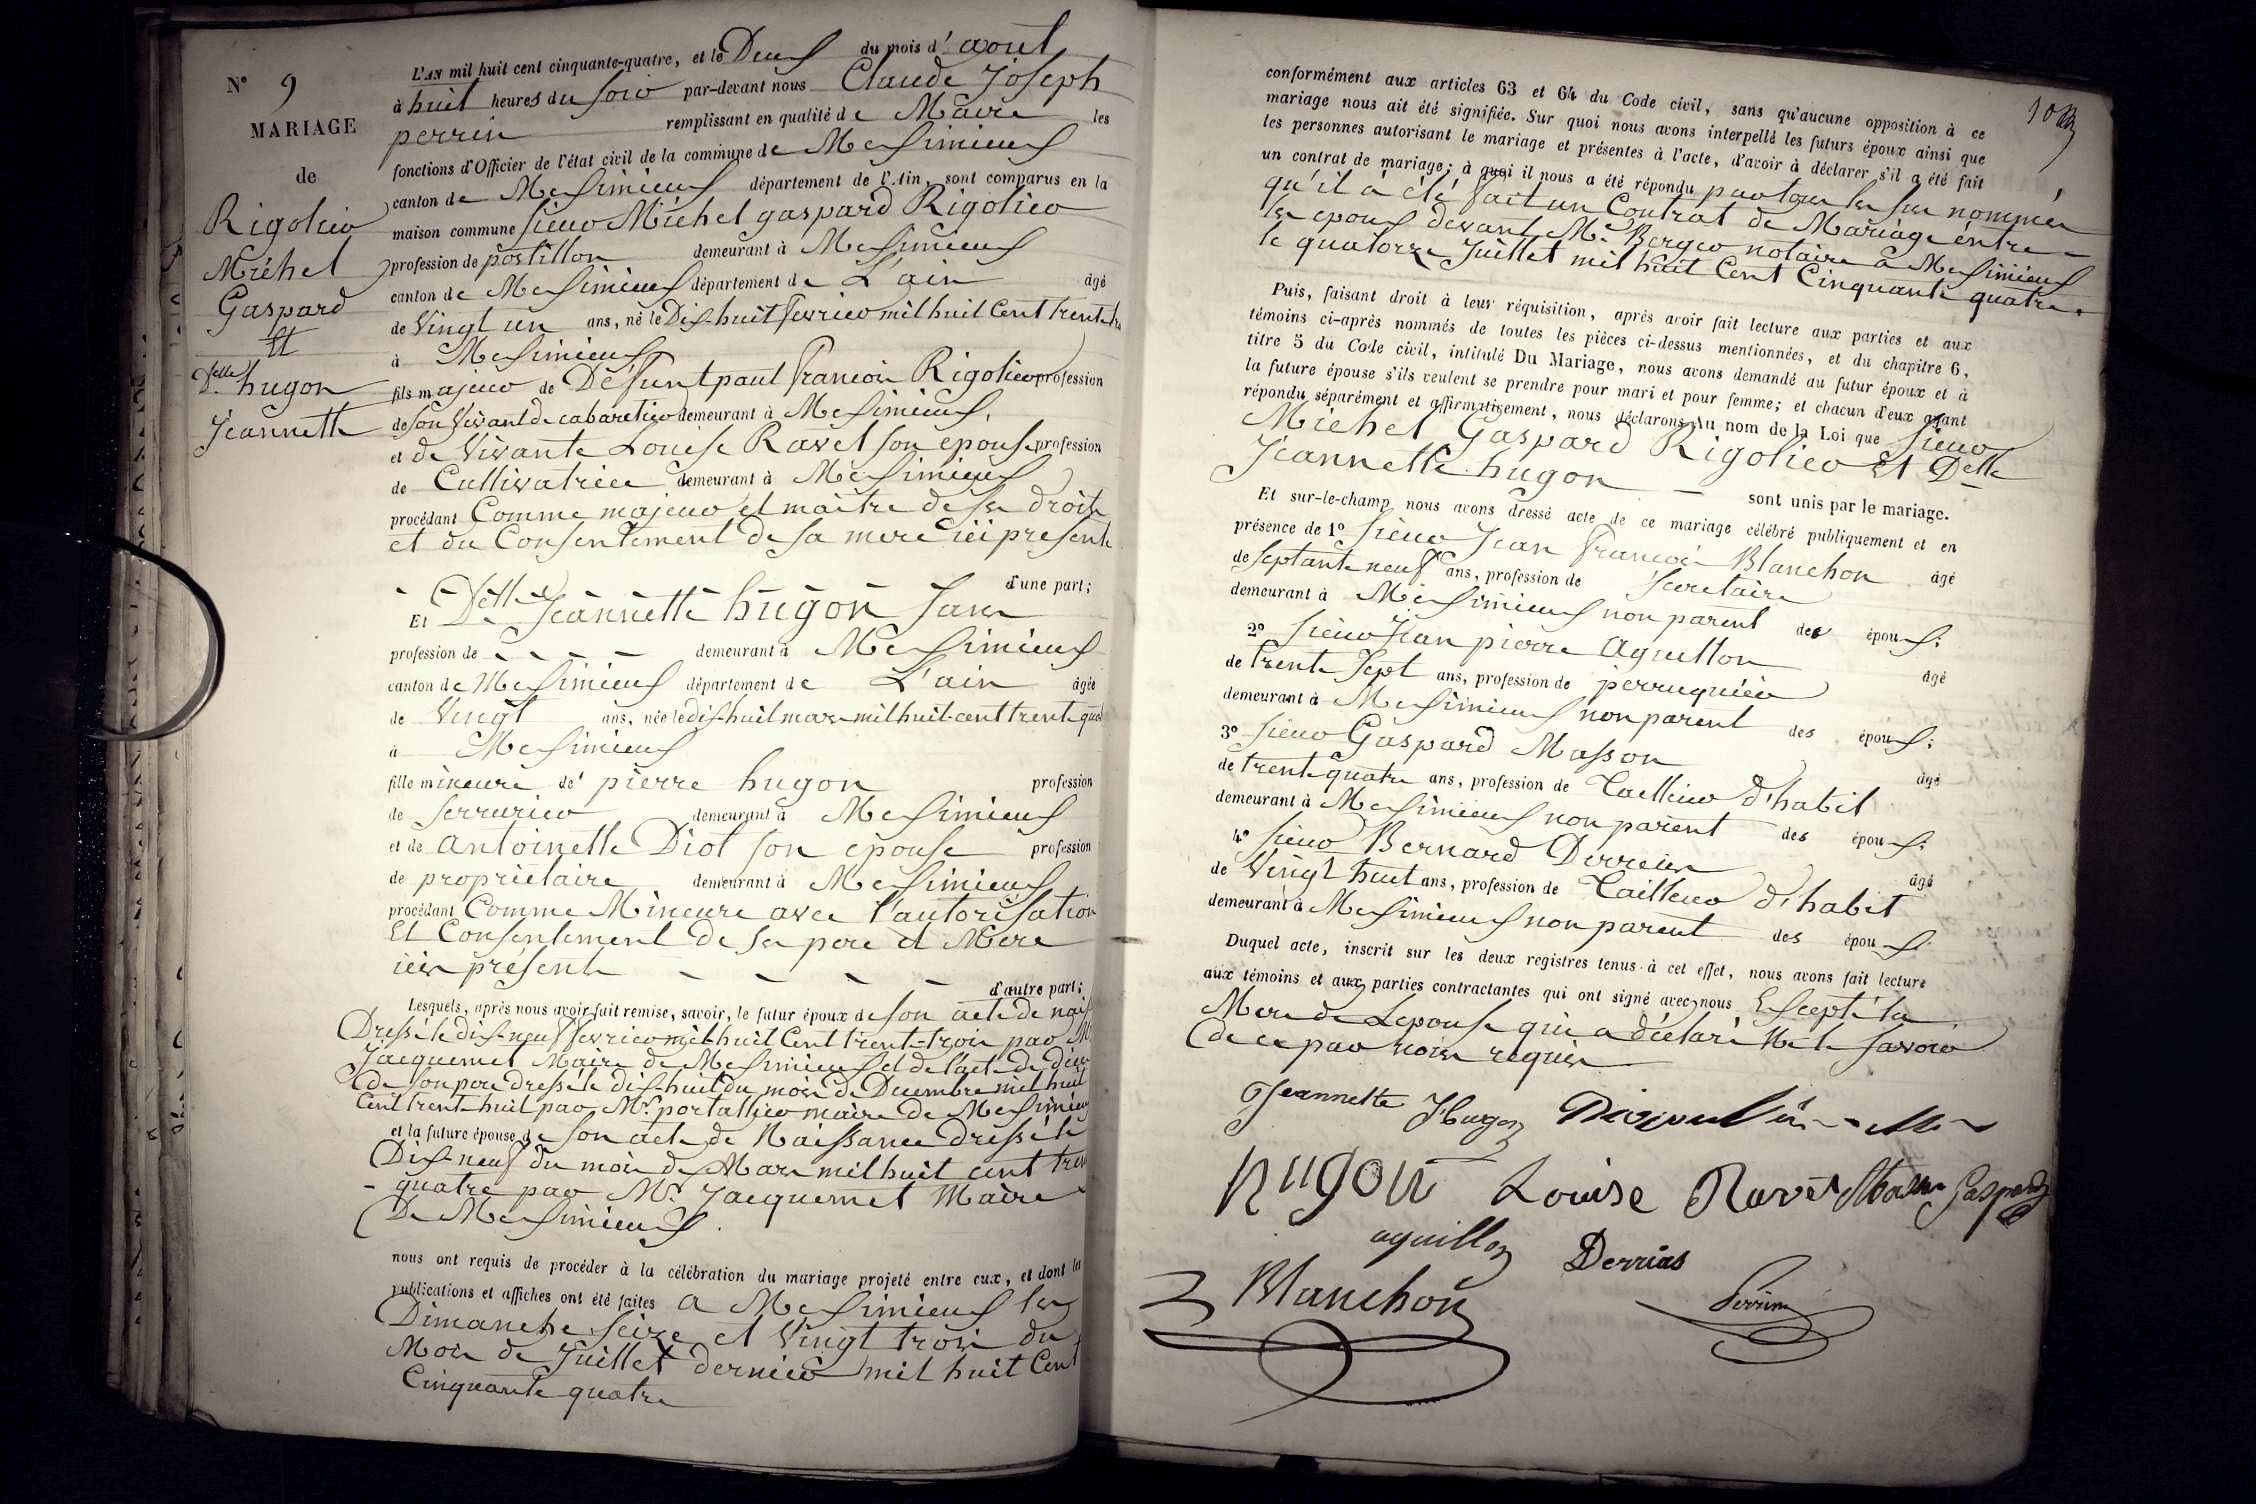 N° 9
MARIAGE
de
Rigolier
Michel
Gaspard
Et
Delle hugon
Jeannette
L'AN mil huit cent cinquante-quatre, et le Deux du mois d'aout
à huit heures du soir par-devant nous Claude Joseph
perrin remplissant en qualité de Maire les
fonctions d'Officier de l'état civil de la commune de Meximieux
canton de Meximieux département de l'Ain, sont comparus en la
maison commune sieur Michel gaspard Rigolier
profession de postillon demeurant à Meximieux
canton de Meximieux département de L'ain âgé
de Vingt un ans, né le Dix-huit fevrier mil huit Cent trente
à Meximieux
fils majeur de Défunt paul francois Rigolier profession
de son Vivant de cabaretier demeurant à Meximieux,
et de Vivante Louise Ravet son epouse profession
de Cultivatrice demeurant à Meximieux
procédant Comme majeur et maitre de ses droits
et du Consentement de sa mere ici presente
d'une part;
Et Delle Jeannette hugon sans
profession de demeurant à Meximieux
canton de Meximieux département de L'ain âgée
de Vingt ans, née le dix-huit mars mil huit-cent trente quat
à Meximieux
fille mineure de pierre hugon profession
de serrurier demeurant à Meximieux
et de antoinette Diot son epouse profession
de propriétaire demeurant à Meximieux
procédant Comme Mineure avec l'autorisation
Et Consentement de ses pere et Mere
ici présents
d'autre part;
Lesquels, après nous avoir fait remise, savoir, le futur époux de son acte de naiss
Dressé le dix-neuf fevrier mil huit Cent trente-trois par M
Jacquemet Maire de Meximieux et de l'acte de déces
de son pere dressé le dix huit du mois de Decembre mil huit
Cent trente huit par Mr portallier maire de Meximieux
et la future épouse de son acte de Naissance dressé le
Dix-neuf du mois de Mars mil huit cent tren
-quatre par Mr Jacquemet Maire
De Meximieux.
nous ont requis de procéder à la célébration du mariage projeté entre eux, et dont les
publications et affiches ont été faites a Meximieux les
Dimanche Seize et Vingt trois du
Mois de Juillet dernier mil huit Cent
Cinquante quatre
conformément aux articles 63 et 64 du Code civil, sans qu'aucune opposition à ce
mariage nous ait été signifiée. Sur quoi nous avons interpellé les futurs époux ainsi que
les personnes autorisant le mariage et présentes à l'acte, d'avoir à déclarer s'il a été fait
un contrat de mariage; à quoi il nous a été répondu par tous les sus nommés
qu'il a été fait un Contrat de Mariage entre
les epoux devant Me Berger notaire a Meximieux
le quatorze Juillet mil huit Cent Cinquante quatre.
Puis, faisant droit à leur réquisition, après avoir fait lecture aux parties et aux
témoins ci-après nommés de toutes les pièces ci-dessus mentionnées, et du chapitre 6,
titre 5 du Code civil, intitulé Du Mariage, nous avons demandé au futur époux et à
la future épouse s'ils veulent se prendre pour mari et pour femme; et chacun d'eux ayant
répondu séparément et affirmativement, nous déclarons Au nom de la Loi que sieur
Michel Gaspard Rigolier Et Delle
Jeannette hugon sont unis par le mariage.
Et sur-le-champ nous avons dressé acte de ce mariage célébré publiquement et en
présence de 1° sieur Jean francois Blanchon âgé
de septante neuf ans, profession de secretaire
demeurant à Meximieux non parent des époux;
2° sieur Jean pierre Aguetton âgé
de trente sept ans, profession de perruquier
demeurant à Meximieux non parent des époux;
3° sieur Gaspard Masson âgé
de trente quatre ans, profession de Tailleur d'habit
demeurant à Meximieux non parent des époux;
4° sieur Bernard Derreias âgé
de Vingt huit ans, profession de Tailleur d'habit
demeurant à Meximieux non parent des époux
Duquel acte, inscrit sur les deux registres tenus à cet effet, nous avons fait lecture
aux témoins et aux parties contractantes qui ont signé avec nous Excepté la
Mere de Lepouse qui a déclaré Ne le savoir
de ce par nous requis
Jeannette Hugon
hugon Louise Ravet Masson Gaspard
aguillon Derrias
Blanchon Perrin